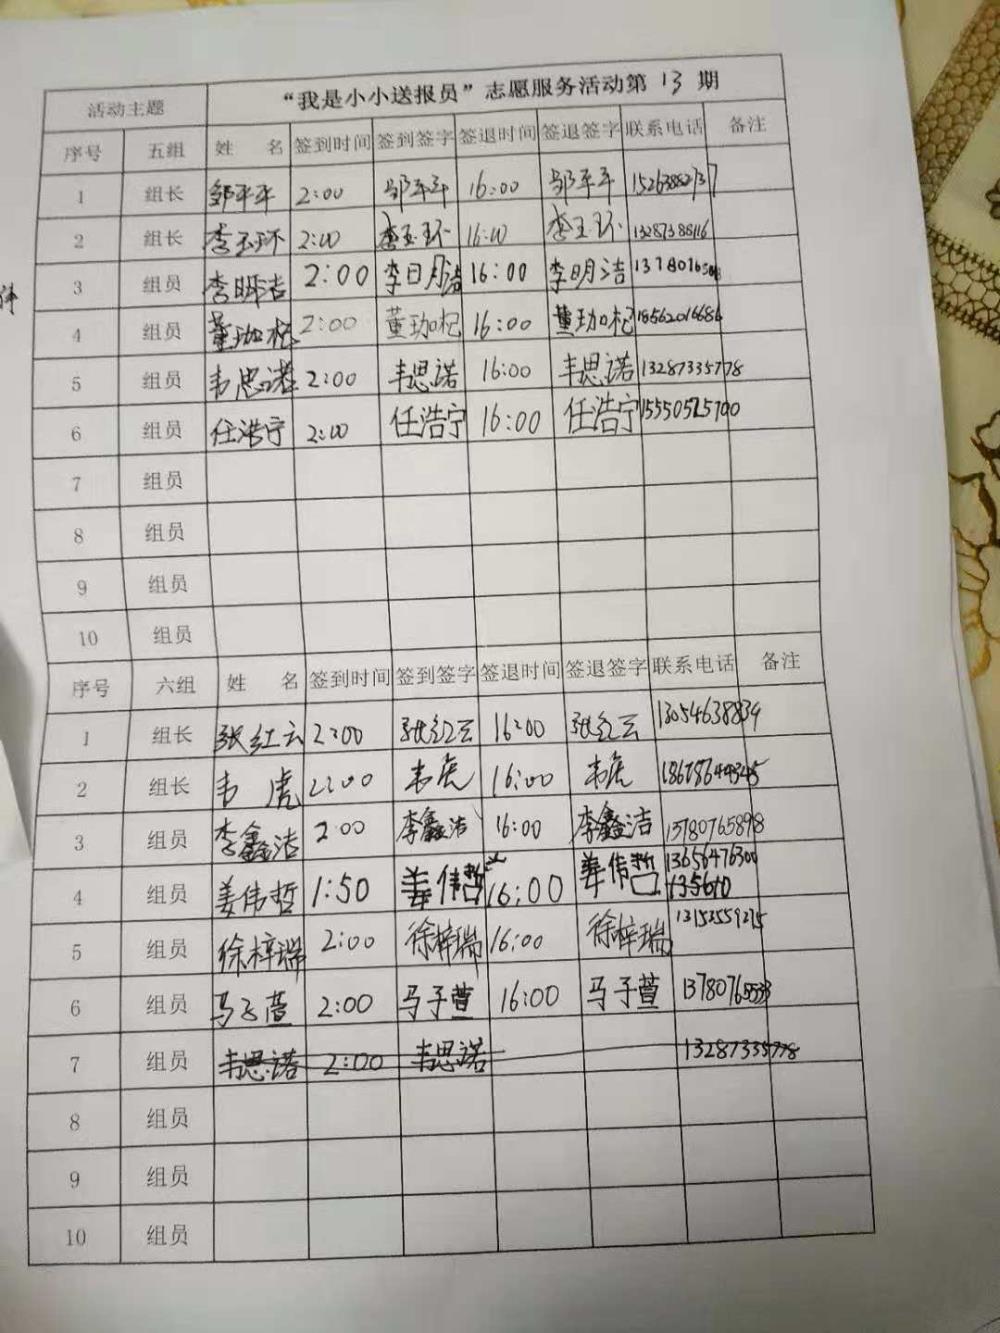 活动主题 “我是小小送报员”志愿服务活动第 13 期
序号 五组 姓 名 签到时间 签到签字 签退时间 签退签字 联系电话 备注
1 组长 邹平平 2:00 邹平平 16:00 邹平平
2 组长 李玉环 2:00 李玉环 16:00 李玉环 13287388116
3 组员 李明洁 2:00 李明洁 16:00 李明洁
4 组员 董珈杞 2:00 董珈杞 16:00 董珈杞 18562016686
5 组员 韦思诺 2:00 韦思诺 16:00 韦思诺 13287335778
6 组员 任浩宁 2:00 任浩宁 16:00 任浩宁
7 组员
8 组员
9 组员
10 组员
序号 六组 姓 名 签到时间 签到签字 签退时间 签退签字 联系电话 备注
1 组长 张红云 2:00 张红云 16:00 张红云 13054638834
2 组长 韦虎 2:00 韦虎 16:00 韦虎
3 组员 李鑫洁 2:00 李鑫洁 16:00 李鑫洁 13780765898
4 组员 姜伟哲 1:50 姜伟哲 16:00 姜伟哲 13656476300
135610
5 组员 徐梓瑞 2:00 徐梓瑞 16:00 徐梓瑞 13153559215
6 组员 马子萱 2:00 马子萱 16:00 马子萱
7 组员 韦思诺 2:00 韦思诺 13287335778
8 组员
9 组员
10 组员